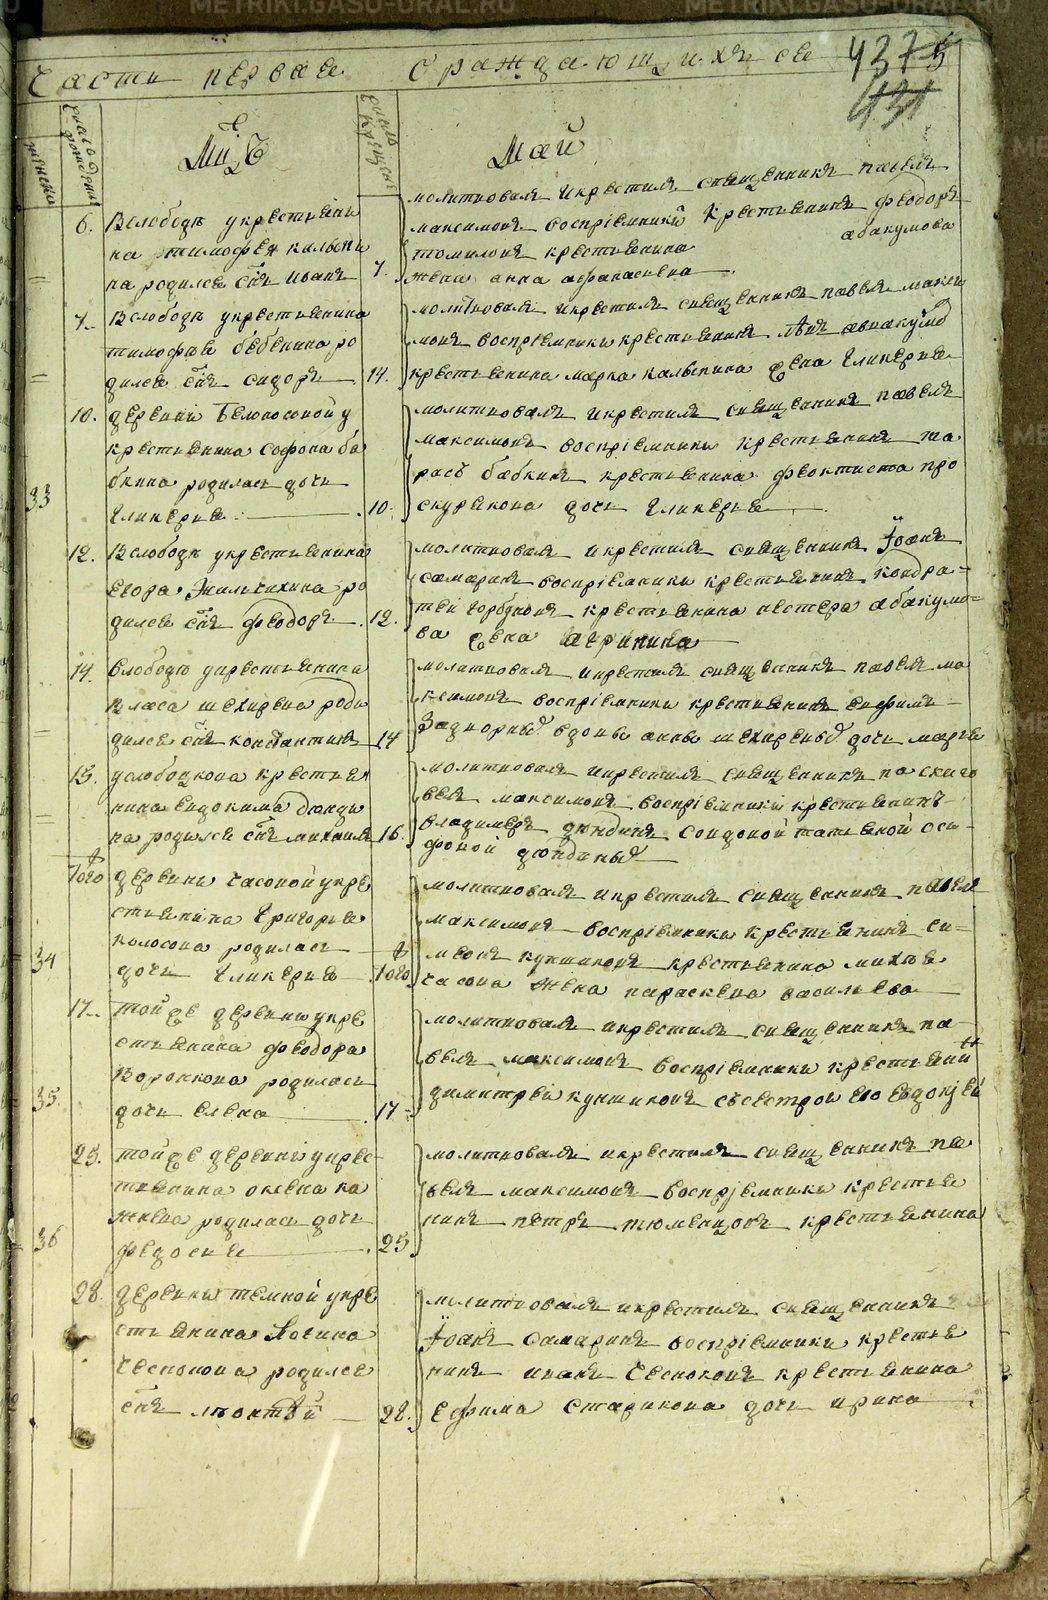 METRIKI.GASU-URAL.RU
METRIKI.GASU-URAL.RU
Части первая о раждающихся
437
431
женска
число рождения
Мц҃ъ
число крещен
Май
6. Вслободѣ укрестьяни
на тимофея калы
на родился сн҃ъ Иванъ
молитвовалъ икрестилъ священникъ павелъ
максимовъ воспріемники Крестьянинъ Феодоръ
томиловъ крестьянина абакумова
жена анна афанасиева
7.
7. Вслободѣ укрестьянина
тимофѣя бѣбенина ро
дился сн҃ъ сидоръ
молитвовалъ икрестилъ священникъ павелъ макси
мовъ воспріемники крестьянинъ
крестьянина марка калыпина жена Гликерия
14.
10. деревни Белоносовой у
крестьянина софона ба
бкина родилась дочь
Гликерия
33
молитвовалъ икрестилъ священникъ павелъ
максимовъ воспріемники крестьянинъ та
расъ бабкинъ крестьянина феоктиста про
скурякова дочь Гликерия
10.
12. Вслободѣ укрестьянина
егора Жильчихина ро
дился сн҃ъ феодоръ
молитвовалъ икрестилъ священникъ Іоанъ
самаринъ воспріемники крестьянинъ кондра
тей городновъ крестьянина нестера абакумо
ва жена агрипина
12.
14. Вслободѣ укрестьянина
Власа шехирева роди
дился сн҃ъ константинъ
молитвовалъ икрестилъ священникъ павелъ ма
ксимовъ воспріемники крестьянинъ ефимъ
Задворных вдовы анны шехиревых дочь марья
14
15. услободкова крестья
нина евдокима дюнди
на родился сн҃ъ михаилъ
молитвовалъ икрестилъ священникъ
максимовъ воспріемники крестьянинъ
владимеръ дюндинъ совдовой татьяной оси
фовой дюндиных
16.
того деревни Часовой укре
стьянина Григорья
колосова родилась
дочь Гликерия
34
молитвовалъ икрестилъ священникъ павелъ
максимовъ воспріемники крестьянинъ си
меонъ кунщиковъ крестьянина михѣя
часова жена параскева васильева
того
17. той же деревни укре
стьянина феодора
Воронкова родилась
дочь елена
35.
молитвовалъ икрестилъ священникъ па
велъ максимовъ воспріемники крестьянин
димитрѣй кунщиковъ съсестрой его евдокіей
17
25. той же деревни укрес
тьянина
родилась дочь
федосия
36
молитвовалъ икрестилъ священникъ па
велъ максимовъ воспріемники крестья
нинъ петръ тюменцовъ крестьянина
25
28. деревни темной укре
стьянина
Чеснокова родился
сн҃ъ леонтѣй
молитвовалъ икрестилъ священникъ
Іоанъ Самаринъ воспріемники крестья
нинъ иванъ Чесноковъ крестьянина
Ефима Старикова дочь ирина
28.